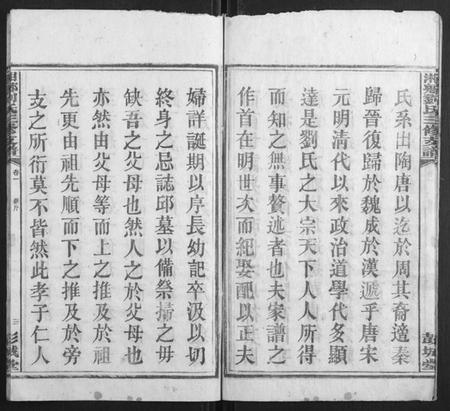 湘鄉劉氏三修支譜
彭城堂
氏系出陶唐以迄於周其裔適秦
歸晉復歸於魏成於漢遞乎唐宋
元明清代以來政治道學代多顯
達是劉氏之大宗天下人人所得
而知之無事贅述者也夫家譜之
作首在明世次而紀娶配以正夫
婦詳誕期以序長幼記卒汲以切
終身之忌誌邱墓以備祭掃之毋
缺吾之父母也然人之於父母也
亦然由父母等而上之推及於祖
先更由祖先順而下之推及於旁
支之所衍莫不皆然此孝子仁人
湘鄉劉氏三修支譜
卷一
三
彭城堂